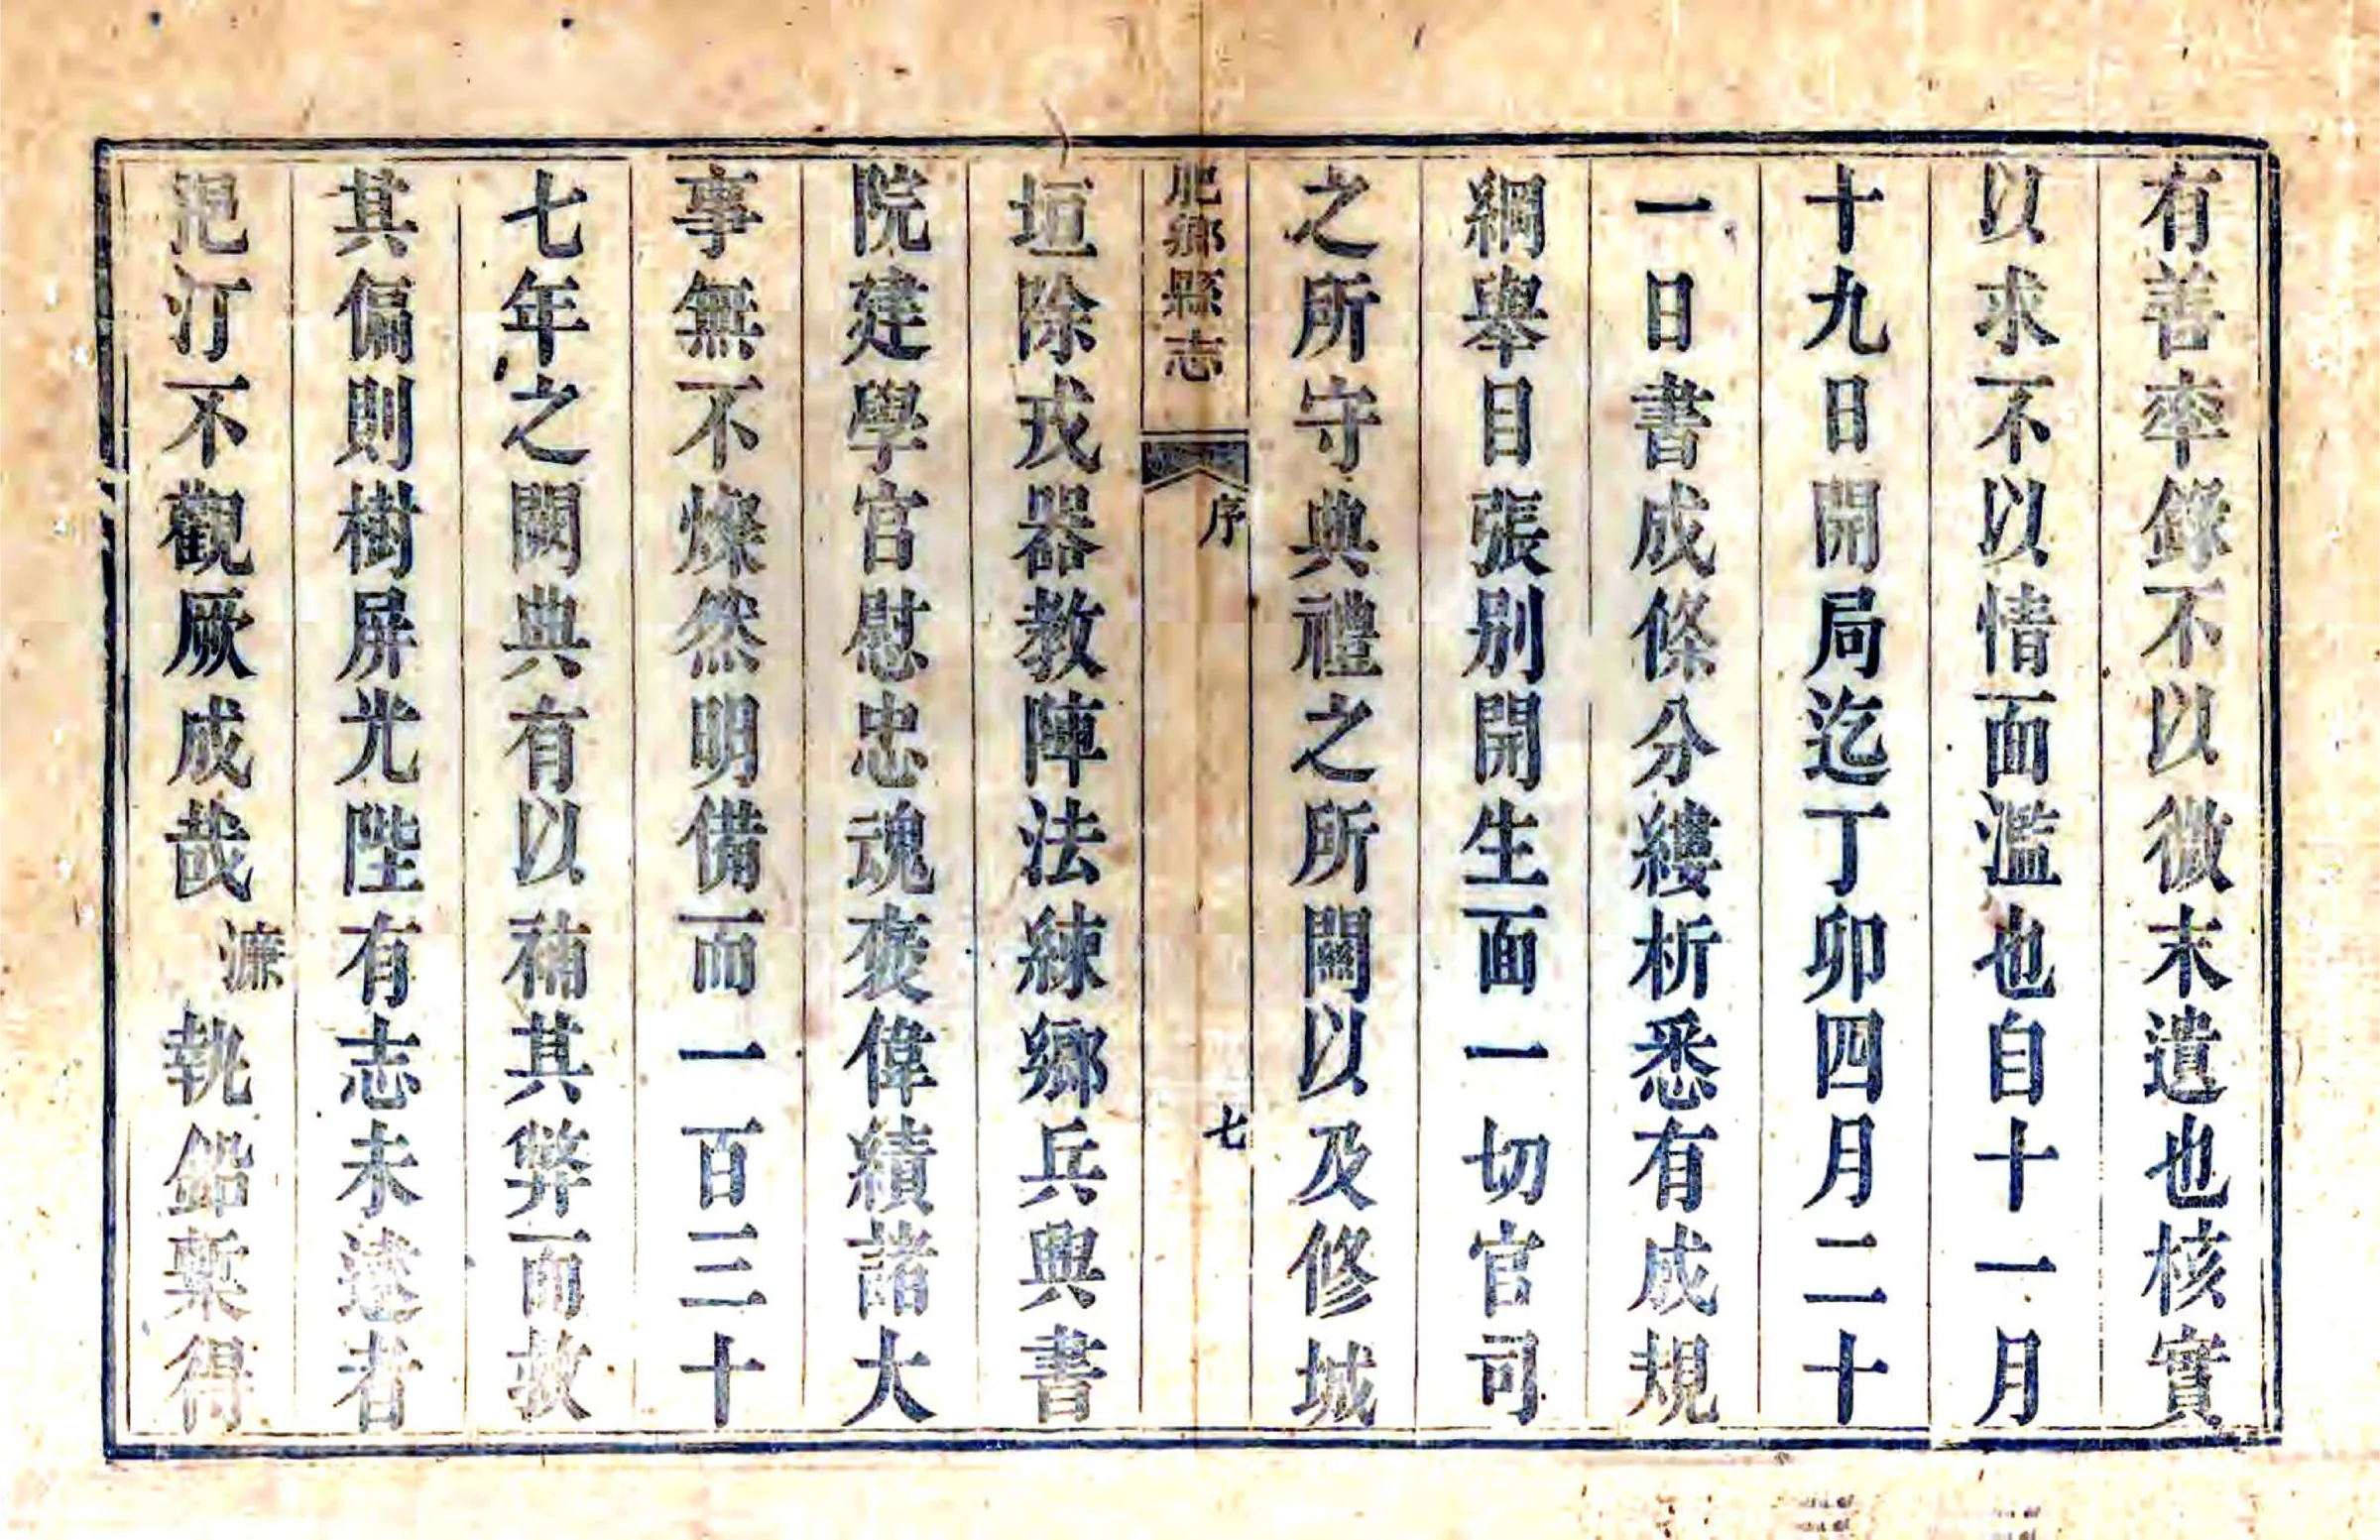 有善率錄不以微末遺也核實
以求不以情面濫也自十一月
十九日開局迄丁卯四月二十
一日書成條分縷析悉有成規
綱舉目張別開生面一切官司
之所守典禮之所關以及修城
肥鄉縣志
序
七
垣除戎器教陣法練鄉兵與書
院建學官慰忠魂褒偉績諸大
事無不燦然明備而一百三十
七年之闕典有以補其弊而救
其偏則樹屏光陛有志未逮者
汜汀不觀厥成哉濂執鉛槧得